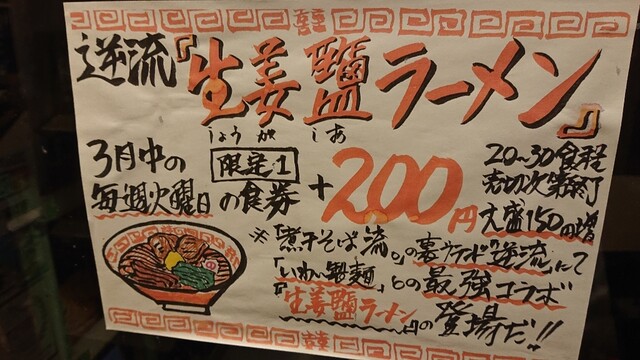 逆流『生姜鹽ラーメン』
しょうが しお
3月中の
毎週火曜日の食券
限定1
+200円
20~30食程
売切次第終了
大盛150円増
※「煮干そば 流。」の裏ブランド"逆流"にて
「いわい製麺」との最強コラボ
『生姜鹽ラーメン』の登場だ!!